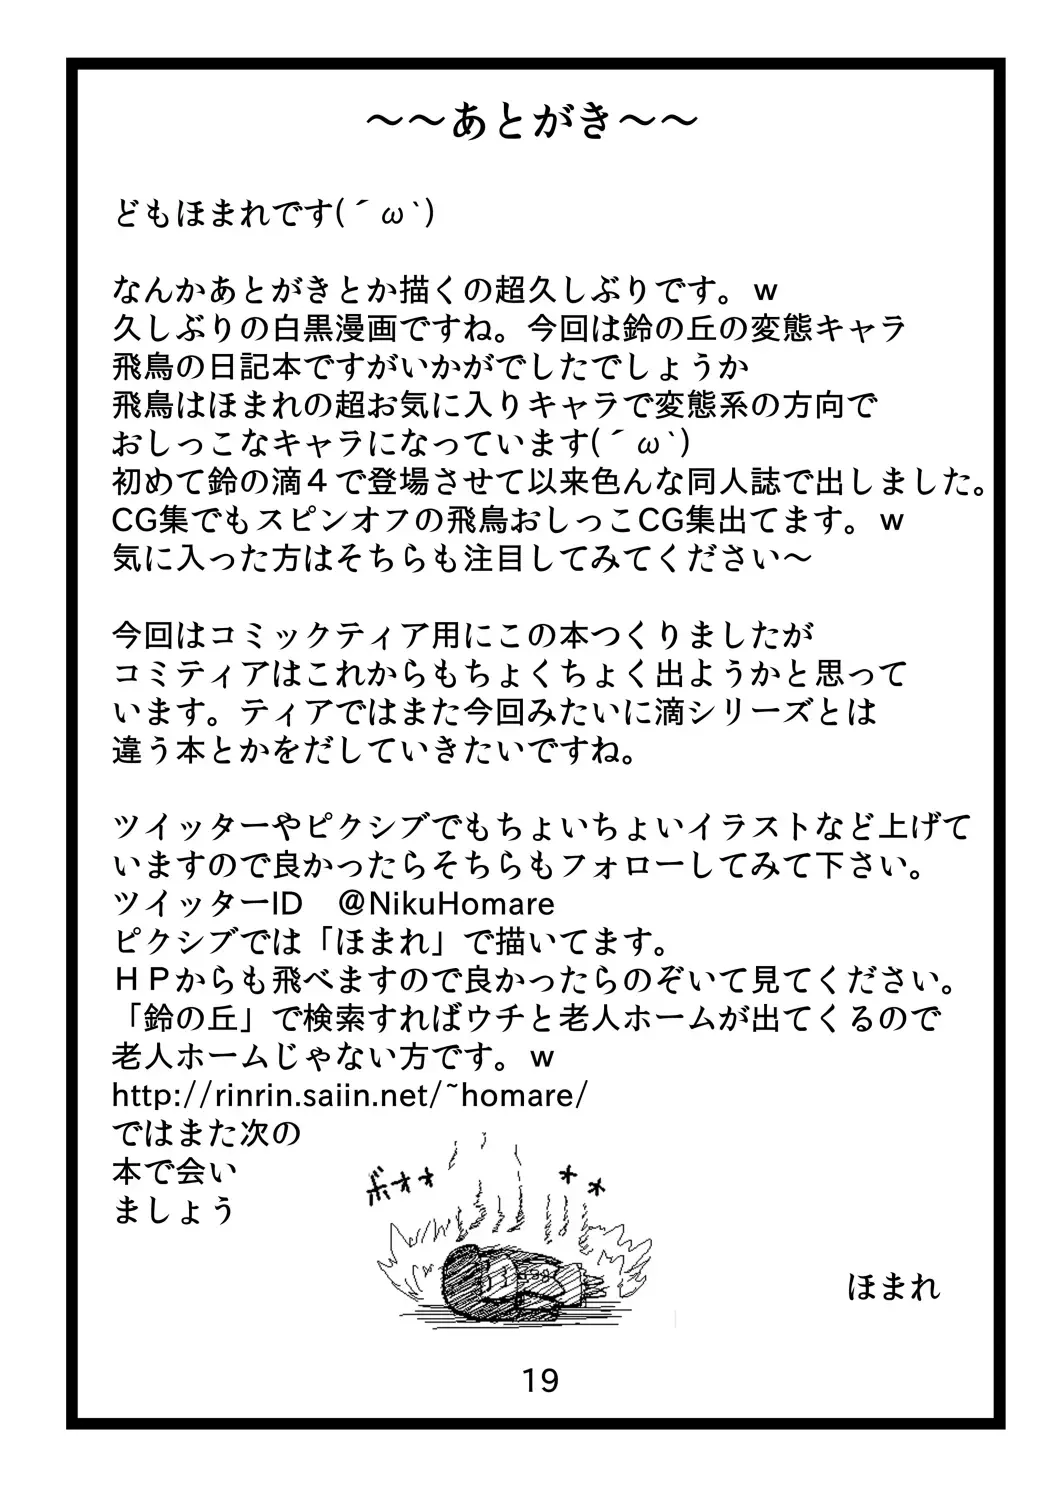 ～～あとがき～～
どもほまれです(´ω`)
なんかあとがきとか描くの超久しぶりです。ｗ
久しぶりの白黒漫画ですね。今回は鈴の丘の変態キャラ
飛鳥の日記本ですがいかがでしたでしょうか
飛鳥はほまれの超お気に入りキャラで変態系の方向で
おしっこなキャラになっています(´ω`)
初めて鈴の滴４で登場させて以来色んな同人誌で出しました。
CG集でもスピンオフの飛鳥おしっこCG集出てます。ｗ
気に入った方はそちらも注目してみてください～
今回はコミックティア用にこの本つくりましたが
コミティアはこれからもちょくちょく出ようかと思って
います。ティアではまた今回みたいに滴シリーズとは
違う本とかをだしていきたいですね。
ツイッターやピクシブでもちょいちょいイラストなど上げて
いますので良かったらそちらもフォローしてみて下さい。
ツイッターID　＠NikuHomare
ピクシブでは「ほまれ」で描いてます。
ＨＰからも飛べますので良かったらのぞいて見てください。
「鈴の丘」で検索すればウチと老人ホームが出てくるので
老人ホームじゃない方です。ｗ
http://rinrin.saiin.net/~homare/
ではまた次の
本で会い
ましょう
ボォォ
ほまれ
19